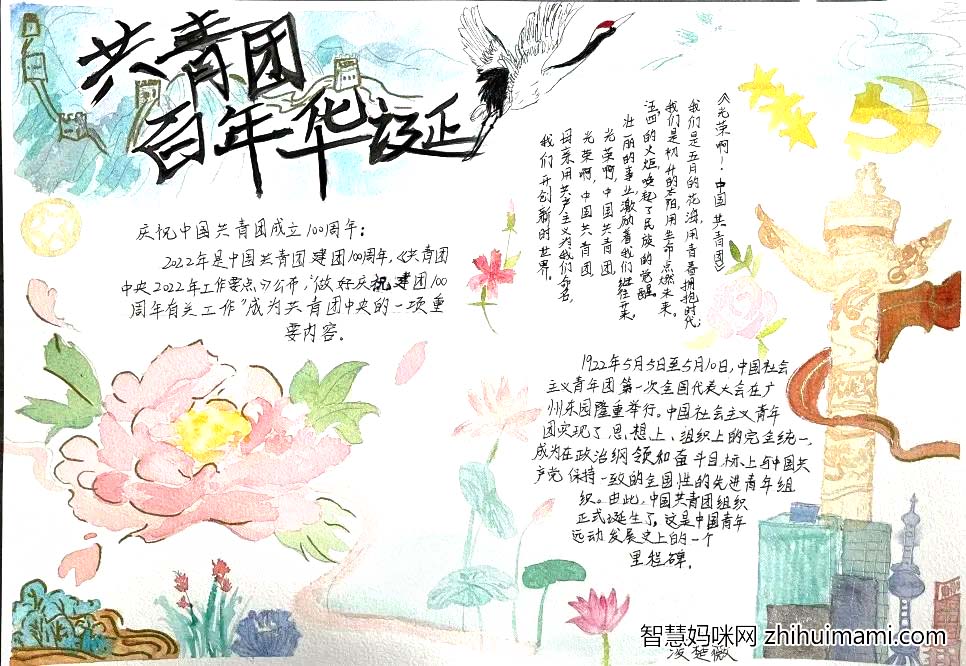 共青团
百年华诞
庆祝中国共青团成立100周年：
2022年是中国共青团建团100周年,《共青团
中央2022年工作要点》公开,“做好庆祝建团100
周年有关工作”成为共青团中央的一项重
要内容。
《光荣啊！中国共青团》
我们是五月的花海,用青春拥抱时代;
我们是初升的太阳,用生命点燃未来。
五四的火炬,唤起了民族的觉醒,
壮丽的事业,激励着我们继往开来。
光荣啊,中国共青团
光荣啊,中国共青团
母亲用共产主义为我们命名,
我们开创新的世界。
1922年5月5日至5月10日,中国社会
主义青年团第一次全国代表大会在广
州东园隆重举行。中国社会主义青年
团实现了思想上、组织上的完全统一,
成为在政治纲领和奋斗目标上与中国共
产党保持一致的全国性的先进青年组
织。由此,中国共青团组织
正式诞生了,这是中国青年
运动发展史上的一个
里程碑。
智慧妈咪网 zhihuimami.com